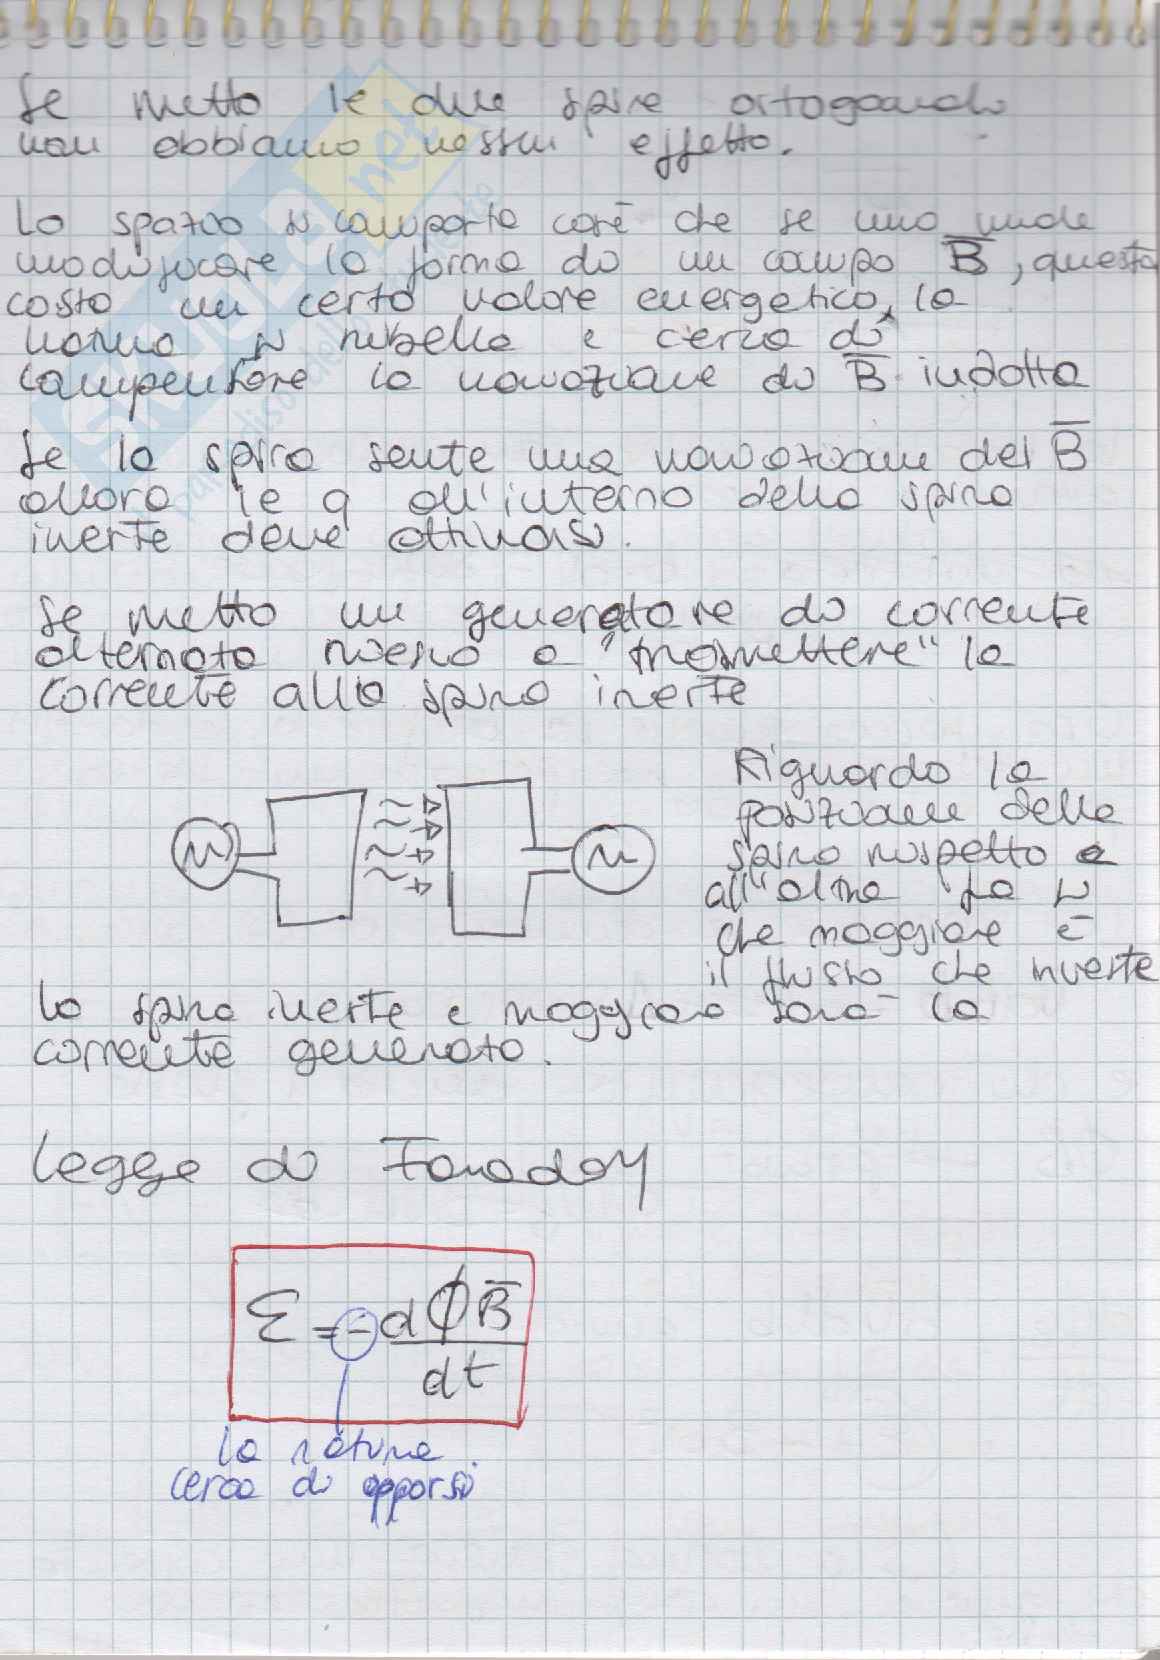 Se metto le due spire ortogonali
non abbiamo nessun effetto.
Lo spazio si comporta così che se uno vuole
modificare la forma di un campo B̅, questa
costa un certo valore energetico, la
natura si ribella e cerca di
compensare la variazione di B̅ indotta
Se la spira sente una variazione del B̅
allora le q all'interno della spira
inerte deve attivarsi.
Se metto un generatore di corrente
alternata riesco a "trasmettere" la
corrente alla spira inerte
Riguardo la
posizione della
spira rispetto a
all'altra fa sì
che maggiore è
il flusso che investe
la spira inerte e maggiore sarà la
corrente generata.
Legge di Faraday
ℰ = - dϕB̅
dt
la natura
cerca di opporsi
SKUOLA.net